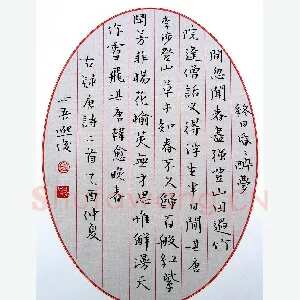 終日昏々醉夢
間忽聞春盡強登山因過竹
院逢僧話又得浮生半日閒其唐
李涉登山草木知春不久歸百般紅紫
鬥芳菲楊花榆莢無才思惟解漫天
作雪飛其唐韓愈晚春
右錄唐詩二首乙酉仲夏